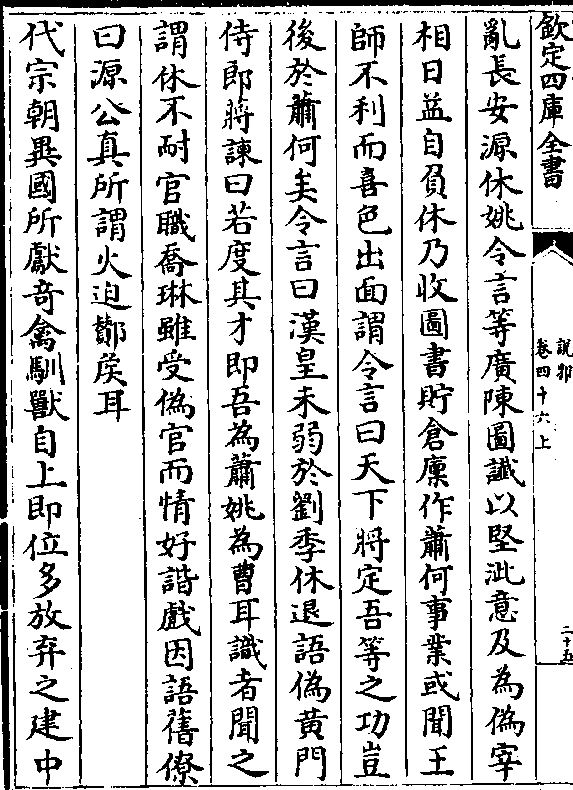 欽定四庫全書
說郛
卷四十六上
二十五
亂長安源休姚令言等廣陳圖讖以堅泚意及為偽宰
相日益自負休乃收圖書貯倉廩作蕭何事業或聞王
師不利而喜色出面謂令言曰天下將定吾等之功豈
後於蕭何矣令言曰漢皇未弱於劉季休退語偽黃門
侍郎蔣諫曰若度其才即吾為蕭姚為曹耳識者聞之
謂休不耐官職喬琳雖受偽官而情好諧戲因語舊僚
曰源公真所謂火迫酇侯耳
代宗朝異國所獻奇禽馴獸自上即位多放弃之建中